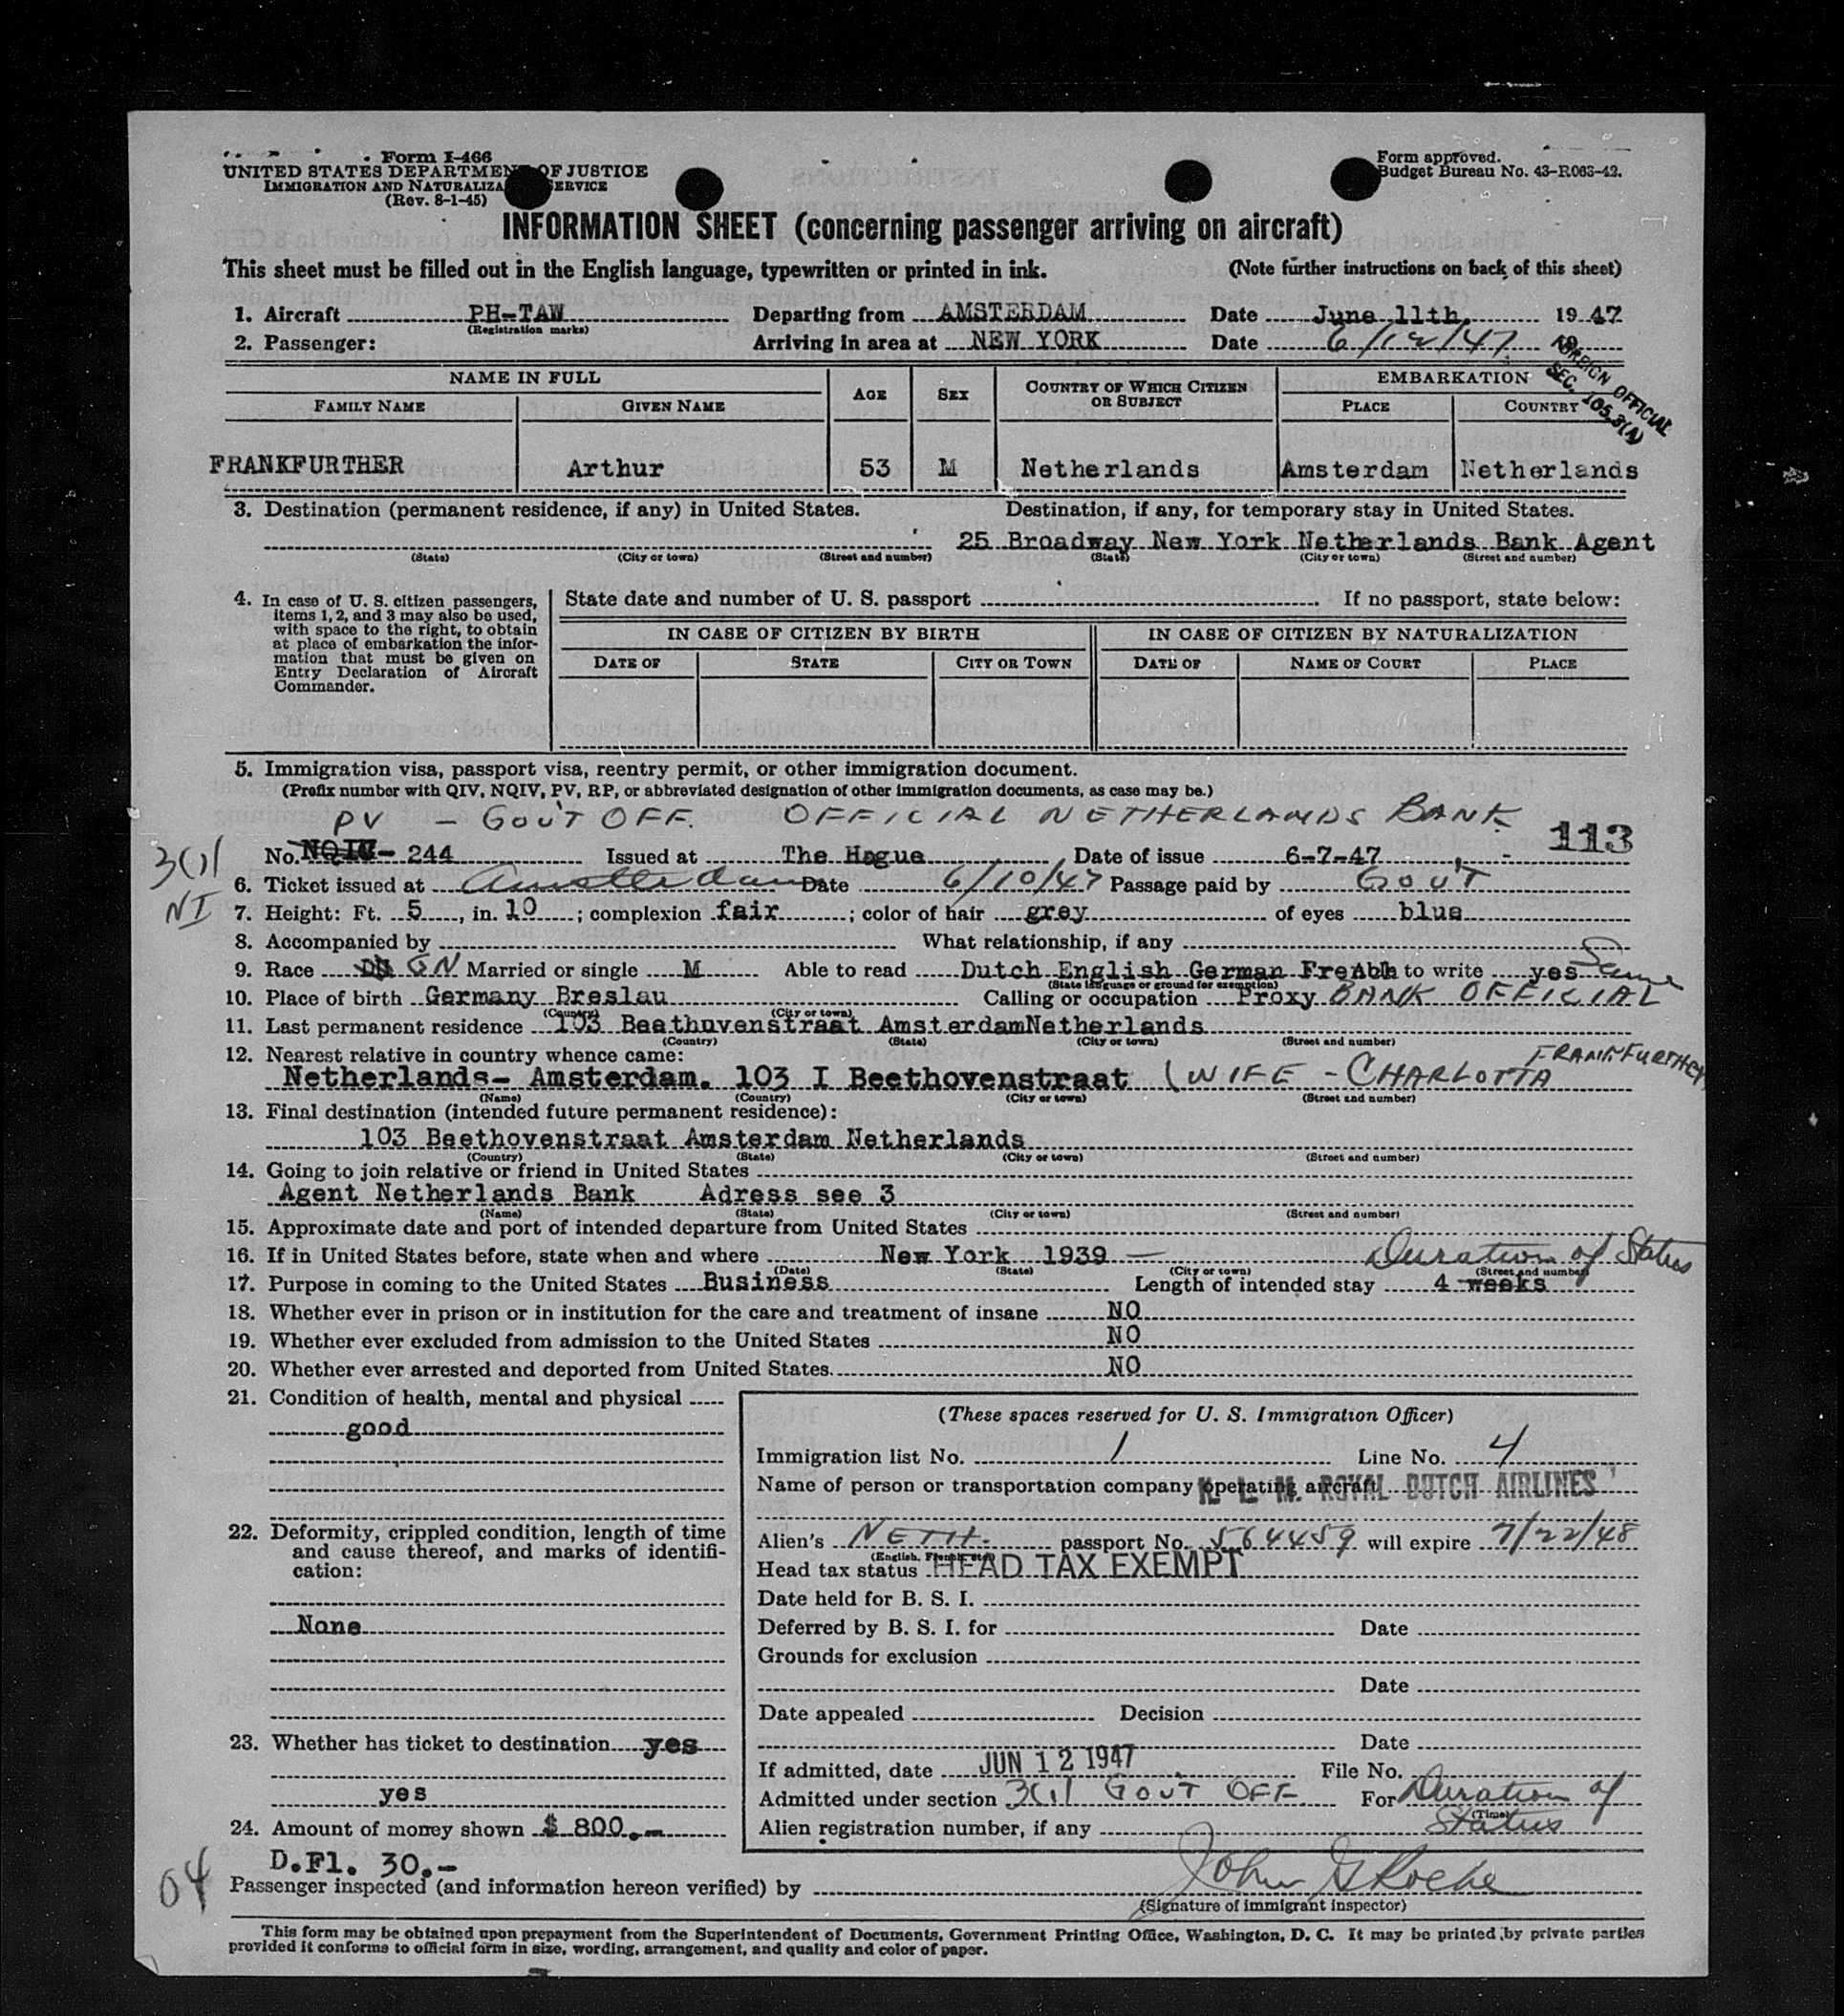 Form I-466
UNITED STATES DEPARTMENT OF JUSTICE
IMMIGRATION AND NATURALIZA SERVICE
(Rev. 8-1-45)
Form approved.
Budget Bureau No. 43-R063-42.
INFORMATION SHEET (concerning passenger arriving on aircraft)
This sheet must be filled out in the English language, typewritten or printed in ink. (Note further instructions on back of this sheet)
1. Aircraft PH-TAW Departing from AMSTERDAM Date June 11th, 1947
(Registration marks)
2. Passenger: Arriving in area at NEW YORK Date 6/12/47 19
FOREIGN OFFICIAL
SEC. 105.3(A)
NAME IN FULL AGE SEX COUNTRY OF WHICH CITIZEN OR SUBJECT EMBARKATION
FAMILY NAME GIVEN NAME PLACE COUNTRY
FRANKFURTHER Arthur 53 M Netherlands Amsterdam Netherlands
3. Destination (permanent residence, if any) in United States. Destination, if any, for temporary stay in United States.
25 Broadway New York Netherlands Bank Agent
(State) (City or town) (Street and number) (State) (City or town) (Street and number)
4. In case of U. S. citizen passengers, items 1, 2, and 3 may also be used, with space to the right, to obtain at place of embarkation the information that must be given on Entry Declaration of Aircraft Commander.
State date and number of U. S. passport If no passport, state below:
IN CASE OF CITIZEN BY BIRTH IN CASE OF CITIZEN BY NATURALIZATION
DATE OF STATE CITY OR TOWN DATE OF NAME OF COURT PLACE
5. Immigration visa, passport visa, reentry permit, or other immigration document.
(Prefix number with QIV, NQIV, PV, RP, or abbreviated designation of other immigration documents, as case may be.)
PV - GOV'T OFF. OFFICIAL NETHERLANDS BANK
3(1) No. NQIV- 244 Issued at The Hague Date of issue 6-7-47 113
6. Ticket issued at Amsterdam Date 6/10/47 Passage paid by GOV'T
NI 7. Height: Ft. 5, in. 10; complexion fair; color of hair grey of eyes blue
8. Accompanied by What relationship, if any
9. Race GN Married or single M Able to read Dutch English German French Able to write yes Same
(State language or ground for exemption)
10. Place of birth Germany Breslau Calling or occupation Proxy BANK OFFICIAL
(Country) (City or town)
11. Last permanent residence 103 Beethovenstraat Amsterdam Netherlands
(Country) (State) (City or town) (Street and number)
12. Nearest relative in country whence came: FRANKFURTHER
Netherlands- Amsterdam. 103 I Beethovenstraat (WIFE - CHARLOTTA
(Name) (Country) (City or town) (Street and number)
13. Final destination (intended future permanent residence):
103 Beethovenstraat Amsterdam Netherlands
(Country) (State) (City or town) (Street and number)
14. Going to join relative or friend in United States
Agent Netherlands Bank Adress see 3
(Name) (State) (City or town) (Street and number)
15. Approximate date and port of intended departure from United States
16. If in United States before, state when and where New York 1939 — Duration of Status
(Date) (State) (City or town) (Street and number)
17. Purpose in coming to the United States Business Length of intended stay 4 weeks
18. Whether ever in prison or in institution for the care and treatment of insane NO
19. Whether ever excluded from admission to the United States NO
20. Whether ever arrested and deported from United States. NO
21. Condition of health, mental and physical
good
22. Deformity, crippled condition, length of time and cause thereof, and marks of identification:
None
23. Whether has ticket to destination yes
yes
24. Amount of money shown $ 800.-
D.Fl. 30.-
(These spaces reserved for U. S. Immigration Officer)
Immigration list No. 1 Line No. 4
Name of person or transportation company operating aircraft K. L. M. ROYAL DUTCH AIRLINES
Alien's NETH. passport No. 564459 will expire 7/22/48
(English, French, etc.)
Head tax status HEAD TAX EXEMPT
Date held for B. S. I.
Deferred by B. S. I. for Date
Grounds for exclusion
Date
Date appealed Decision
Date
If admitted, date JUN 12 1947 File No.
Admitted under section 3(1) GOVT OFF. For Duration of Status
(Time)
Alien registration number, if any
04
Passenger inspected (and information hereon verified) by John G Roche
(Signature of immigrant inspector)
This form may be obtained upon prepayment from the Superintendent of Documents, Government Printing Office, Washington, D. C. It may be printed by private parties
provided it conforms to official form in size, wording, arrangement, and quality and color of paper.